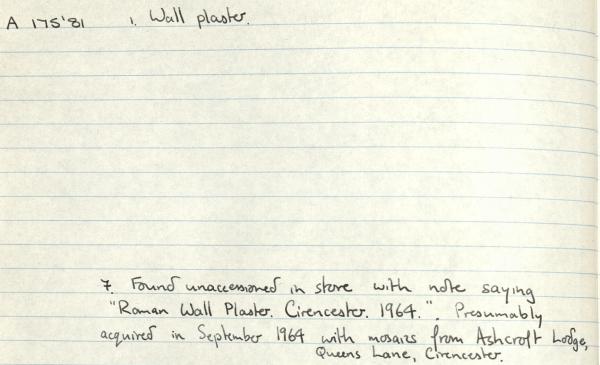 A 175'81 1. Wall plaster.
7. Found unaccessioned in store with note saying
"Roman Wall Plaster. Cirencester. 1964.". Presumably
acquired in September 1964 with mosaics from Ashcroft Lodge,
Queens Lane, Cirencester.